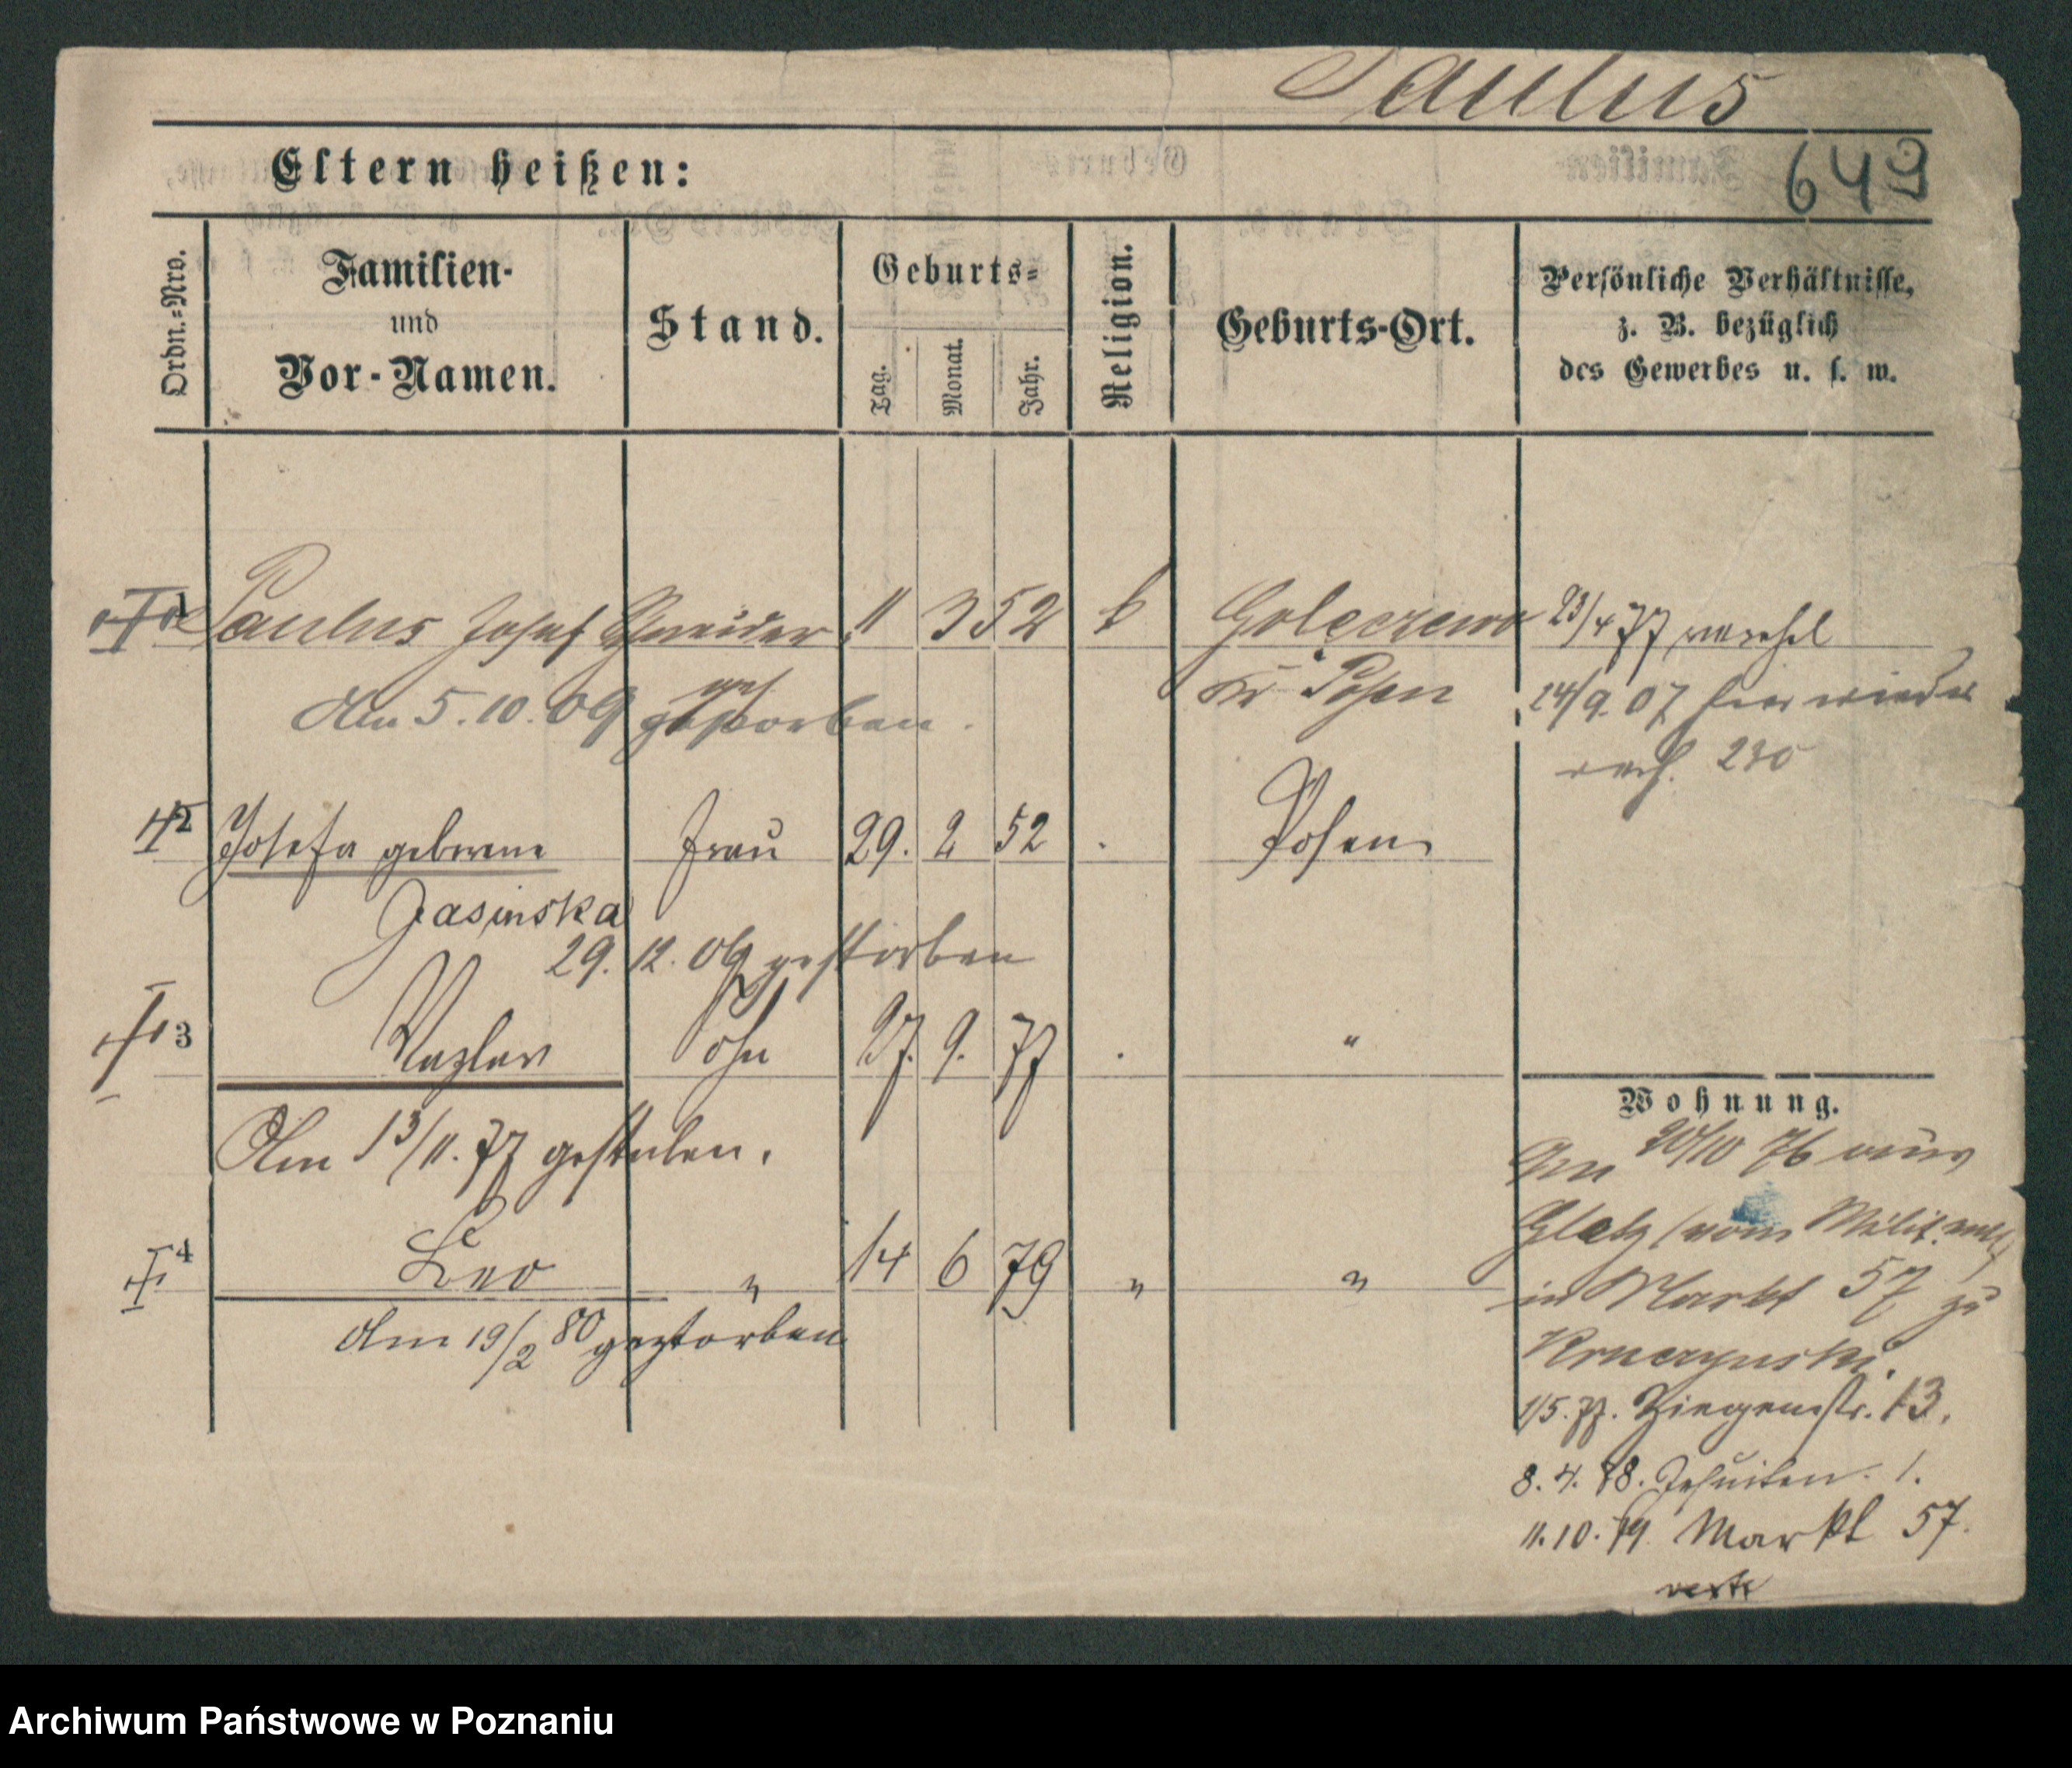 Paulus
649
Eltern heißen:
Ordn.=Nro.
Familien-
und
Vor-Namen.
Stand.
Geburts=
Tag.
Monat.
Jahr.
Religion.
Geburts-Ort.
Persönliche Verhältnisse,
z. B. bezüglich
des Gewerbes u. s. w.
1 Paulus Josef Schneider 11 3 52 k Golęczewo 23/4 77
Kr Posen 24/9. 07 hier wieder
Am 5. 10. 09 gestorben.
230
2 Josefa geborene Frau 29. 2 52 Posen
Jasinska
29. 12. 09 gestorben
3 Wazlaw Sohn 27. 9. 77 "
Am 13/11. 77 gestorben.
4 Leo " 14 6 79 " "
Am 19/2 80 gestorben
Wohnung.
Am 20/10 76 aus
Glatz (vom Milit.
in Markt 57 zu
1/5. 77. Ziegenstr. 13.
8. 4. 78. Jesuiten. 1.
11. 10. 79 Markt 57.
Archiwum Państwowe w Poznaniu